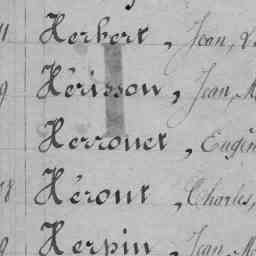 11 Herbert, Jean,
9 Hérisson, Jean, M
Herrouet, Eugèn
78 Hérout, Charles,
9 Herpin, Jean M